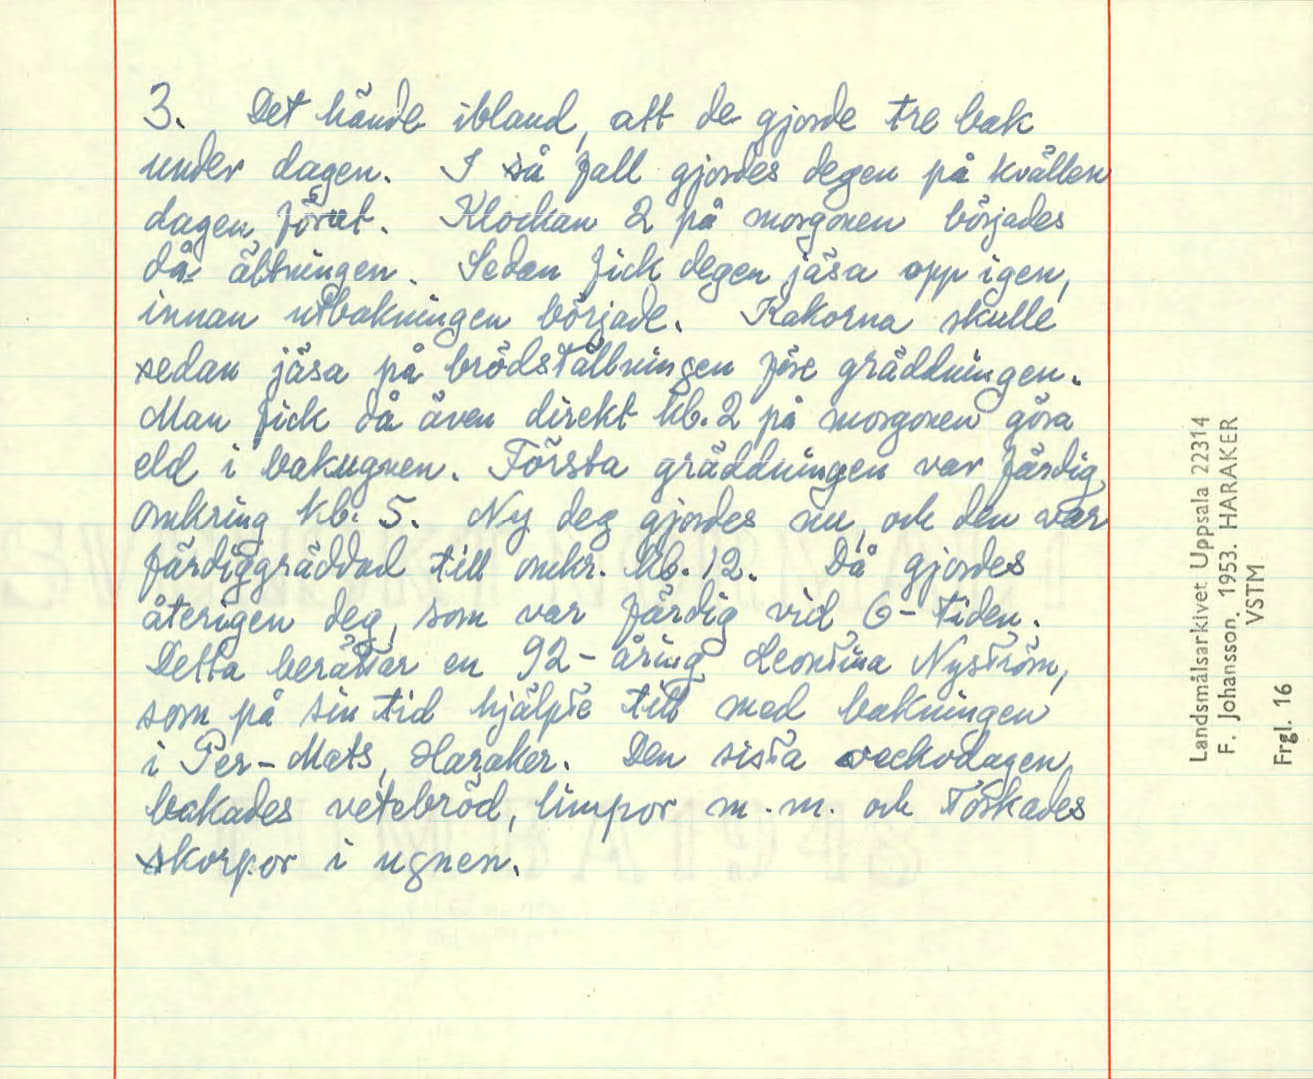 3. Det hände ibland, att de gjorde tre bak
under dagen. I så fall gjordes degen på kvällen
dagen förut. Klockan 2 på morgonen börjades
då ältningen. Sedan fick degen jäsa opp igen,
innan utbakningen började. Kakorna skulle
sedan jäsa på brödställningen före gräddningen.
Man fick då även direkt kl. 2 på morgonen göra
eld i bakugnen. Första gräddningen var färdig
omkring kl. 5. Ny deg gjordes nu, och den var
färdiggräddad till omkr. kl. 12. Då gjordes
återigen deg, som var färdig vid 6-tiden.
Detta berättar en 92-åring Leontina Nyström,
som på sin tid hjälpte till med bakningen
i Per-Mats, Haraker. Den sista veckodagen
bakades vetebröd, limpor m.m. och torkades
skorpor i ugnen.
Landsmålsarkivet Uppsala 22314
F. Johansson. 1953. HARAKER
VSTM
Frgl. 16